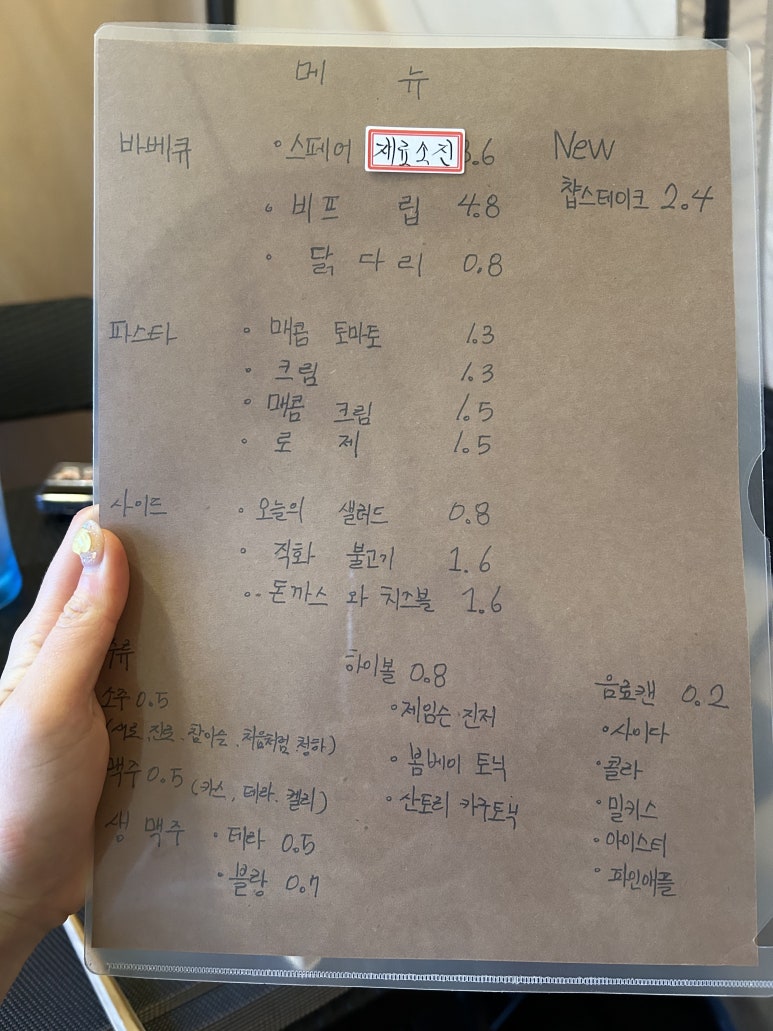 메 뉴
바베큐 ∘스페어 재료소진 3.6
∘비프 립 4.8
∘닭 다리 0.8
New
찹스테이크 2.4
파스타 ∘매콤 토마토 1.3
∘크림 1.3
∘매콤 크림 1.5
∘로 제 1.5
사이드 ∘오늘의 샐러드 0.8
∘직화 불고기 1.6
∘∘돈까스 와 치즈볼 1.6
주류
소주 0.5
(새로.진로.참이슬.처음처럼.청하)
맥주 0.5 (카스, 테라.켈리)
생 맥주 •테라 0.5
•블랑 0.7
하이볼 0.8
•제임슨 진저
•봄베이 토닉
•산토리 카쿠토닉
음료캔 0.2
•사이다
•콜라
•밀키스
•아이스티
•파인애플